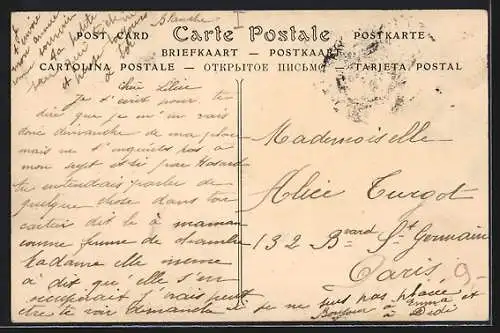 Blanche
POST CARD Carte Postale POSTKARTE
BRIEFKAART — POSTKAART
CARTOLINA POSTALE — ОТКРЫТОЕ ПИСЬМО — TARJETA POSTAL
Je t'écris pour te
dire que je m'en vais
donc dimanche de ma place
mais ne t'inquiète pas à
mon sujet et si par Hasard
tu entendais parler de
quelque chose dans ton
dit le à maman
comme femme de chambre
Madame elle même
a dit qu'elle s'en
occuperait j'irais peut
être te voir dimanche si je ne suis pas placée
Bonjour à Emma et
à Didi
Mademoiselle
Alice Turgot
132 Bvard St Germain
Paris
9-